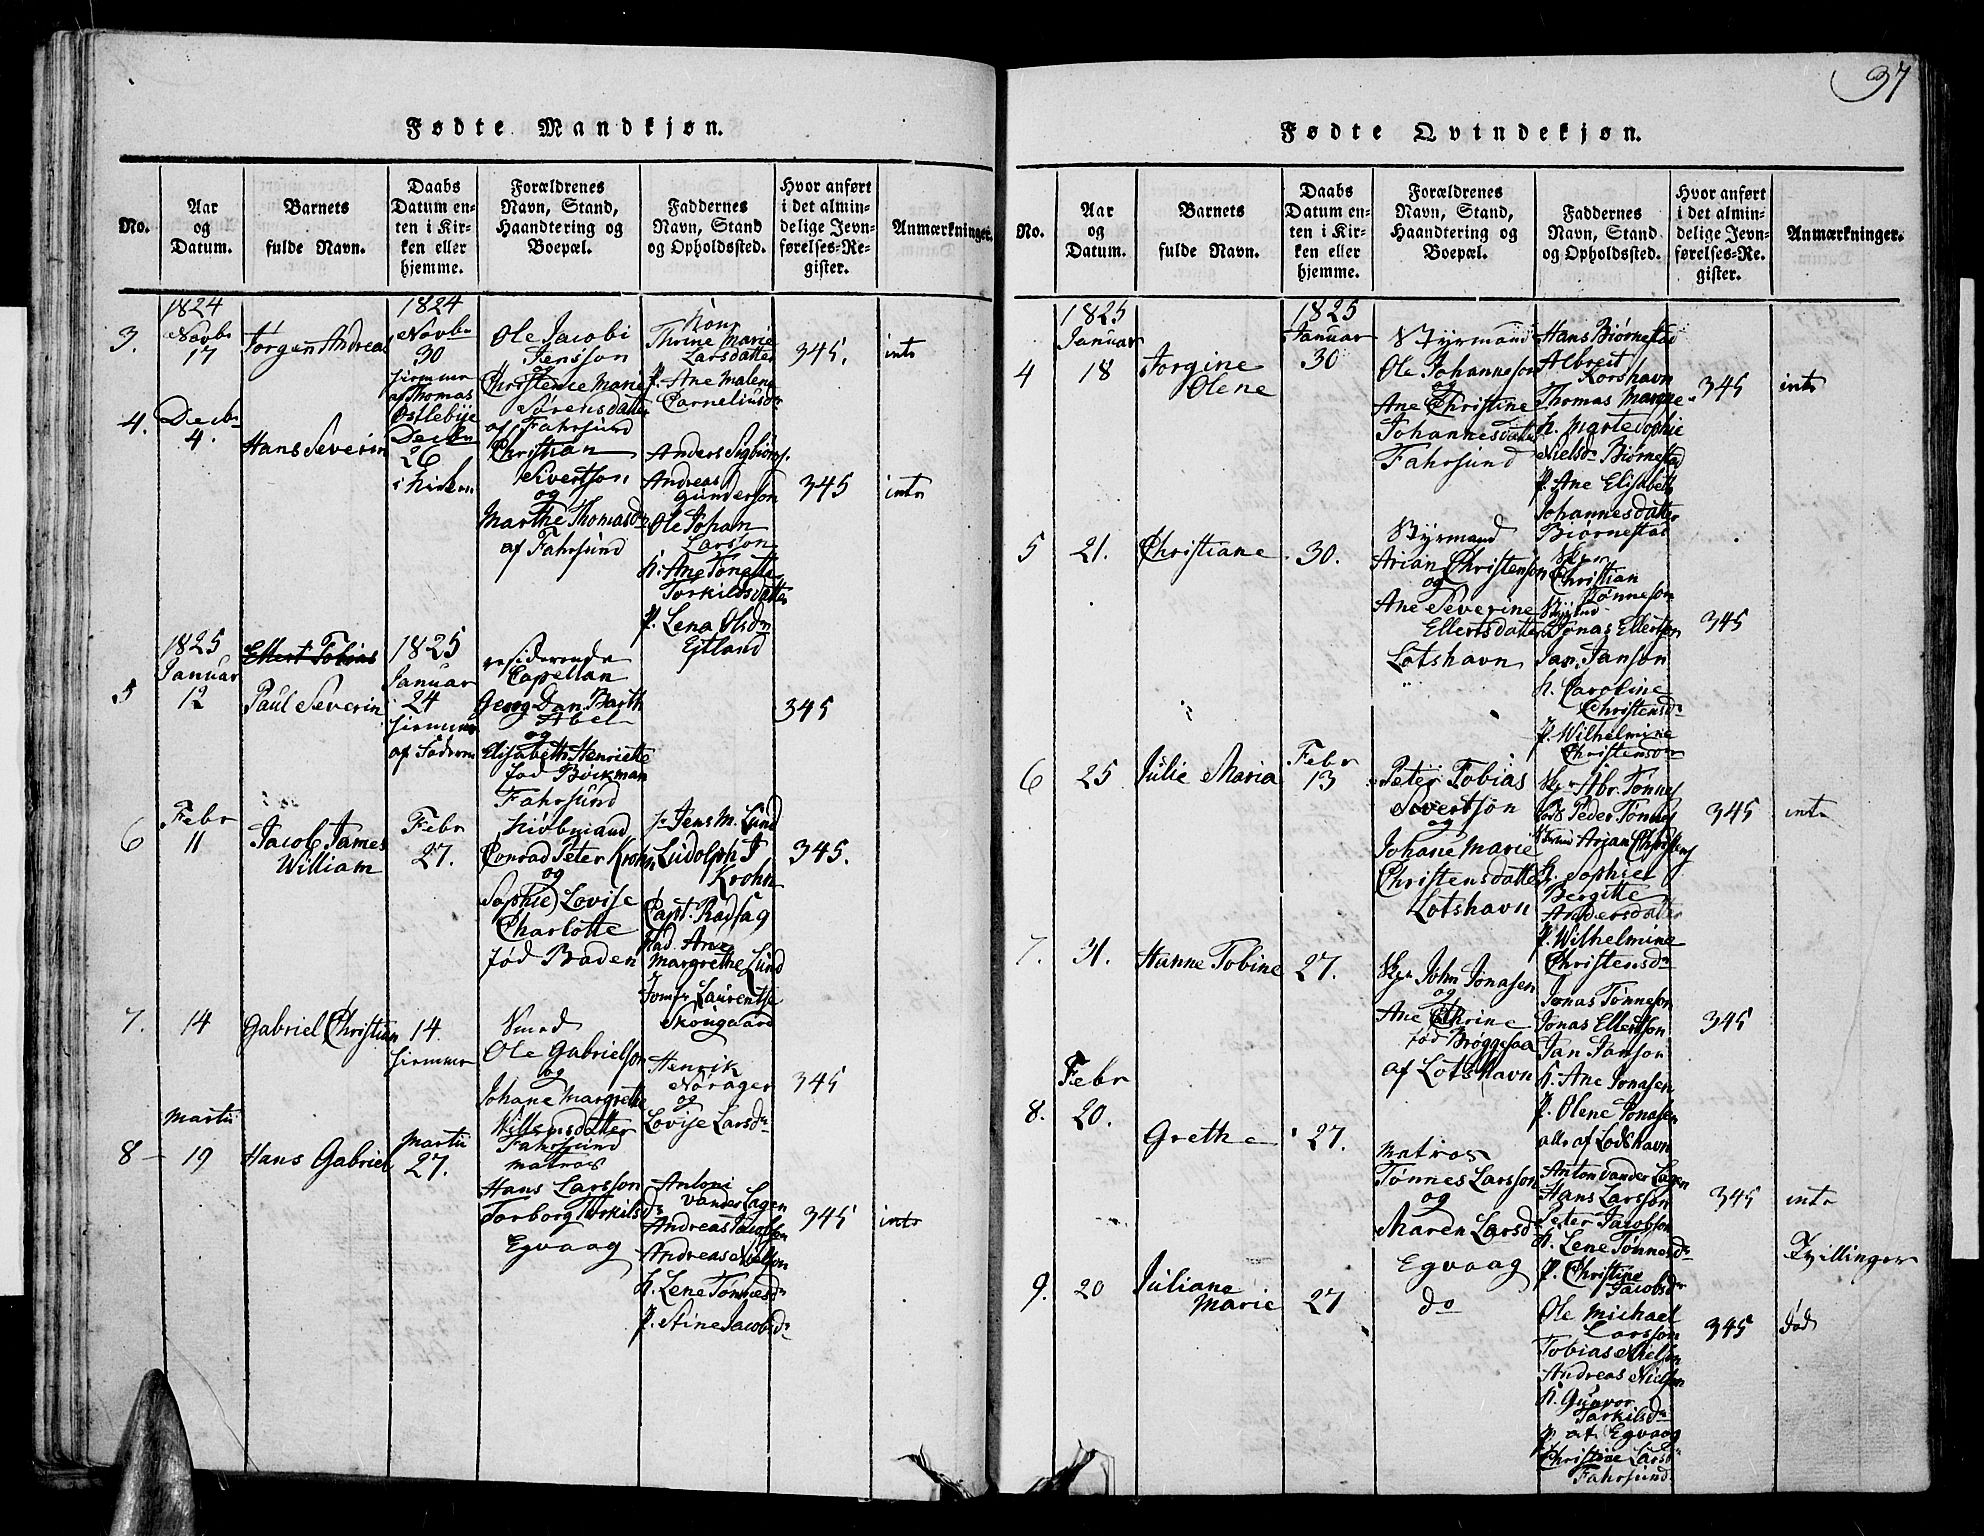 37
Fødte Mandkjøn.
No.
Aar
og
Datum.
Barnets
fulde Navn.
Daabs
Datum en-
ten i Kir-
ken eller
hjemme.
Forældrenes
Navn, Stand,
Haandtering og
Boepæl.
Faddernes
Navn, Stand
og Opholdssted.
Hvor anført
i det almin-
delige Jevn-
førelses-Re-
gister.
Anmærkninger.
3.
1824
Novbr
17
Torgen Andreas
1824
Novbr
30
hjemme
af Thomas
Østlebye
Ole Jacobi
Jensson
og
Christence Marie
Sørensdatter
af Fahrsund
Thrine Marie
Larsdatter
P. Ane Malene
Corneliusdr
345.
intr
4.
Decbr
4.
Hans Severin
Decbr
26
i Kirken
Christian
Sivertson
og
Marthe Thomasdr
af Fahrsund
Anders Sigbiørns.
Andreas
Gunderson
Ole Johan
Larsson
K. Ane Tonette
Torkildsdatter
P. Lena Olsdr
Eitland
345
intr
5
1825
Januar
12
Ellert Tobias
Paul Severin
1825
Januar
24
hjemme
af Faderen
residerende
Capellan
Georg Dan. Barth
Abel
og
Elisabeth Henriette
fød Bøckman
Fahrsund
345
6
Febr
11
Jacob James
William
Febr
27.
Kiøbmand
Conrad Peter Krohn
og
Sophie Lovise
Charlotte
fød Baden
Hr Jens M. Lund
Ludolph J
Krohn
Capt. Rodsag
Mad. Ane
Margrethe Lund
Jomfr Laurentse
Skougaard
345.
7.
14
Gabriel Christian
14.
hjemme
Smed
Ole Gabrielson
og
Johane Margrethe
Willumsdatter
Fahrsund
Henrik
Nørager
og
Lovise Larsdr
345
8
Martii
19
Hans Gabriel
Martii
27.
Matros
Hans Larsson
Torborg Torkilsdr
Egvaag
Antoni
vander Lagen
Andreas Jacobson
Andreas Nielson
K. Lene Tønnesdr
P. Stine Jacobsdr
345
intr
Fødte Qvindekjøn.
No.
Aar
og
Datum.
Barnets
fulde Navn.
Daabs
Datum en-
ten i Kir-
ken eller
hjemme.
Forældrenes
Navn, Stand,
Haandtering og
Boepæl.
Faddernes
Navn, Stand
og Opholdssted.
Hvor anført
i det almin-
delige Jevn-
førelses-Re-
gister.
Anmærkninger.
4
1825
Januar
18
Torgine
Olene
1825
Januar
30
Styrmand
Ole Johanneson
og
Ane Christine
Johannesdatter
Fahrsund
Hans Biørnestad
Albreit
Korshavn
Thomas Mange
K. Martesophie
Nielsdr Biørnestad
P. Ane Elisabeth
Johannesdatter
Biørnestad
345
intr
5
21.
Christiane
30.
Styrmand
Arian Christenson
og
Ane Severine
Ellertsdatter
Lotshavn
Christian
Tønneson
Jonas Ellertson
Jan Janson
K. Caroline
Christensdr
P. Wilhelmine
Christensdr
345
6
25
Julie Maria
Febr
13
Peter Tobias
Sivertson
og
Johane Marie
Christensdatter
Lotshavn
Skr Abr. Tønnes
Lods Peder Tønnes
Arjan Christens
K. Sophie
Bergitte
Andersdatter
P. Wilhelmine
Christensdr
345
intr
7.
31.
Hanne Tobine
27.
Skr John Jonasen
og
Ane Cthrine
fød Brøggesaa
af Lotshavn
Jonas Tønneson
Jonas Ellertson
Jan Janson
K. Ane Jonasen
P. Olene Jonasen
alle af Lodshavn
345
8.
Febr
20.
Grethe
27.
Matros
Tønnes Larsson
og
Maren Larsdr
Egvaag
Anton vander Lagen
Hans Larsson
Peter Jacobson
K. Lene Tønnesdr
P. Christine
Jacobsdr
345
intr
Tvillinger
9.
20
Juliane
Marie
27
do
Ole Michael
Larsson
Tobias Nielson
Andreas Nielson
K. Gunvor
Torkilsdr
P. af Egvaag
Christine Larsdr
Fahrsund
345
død